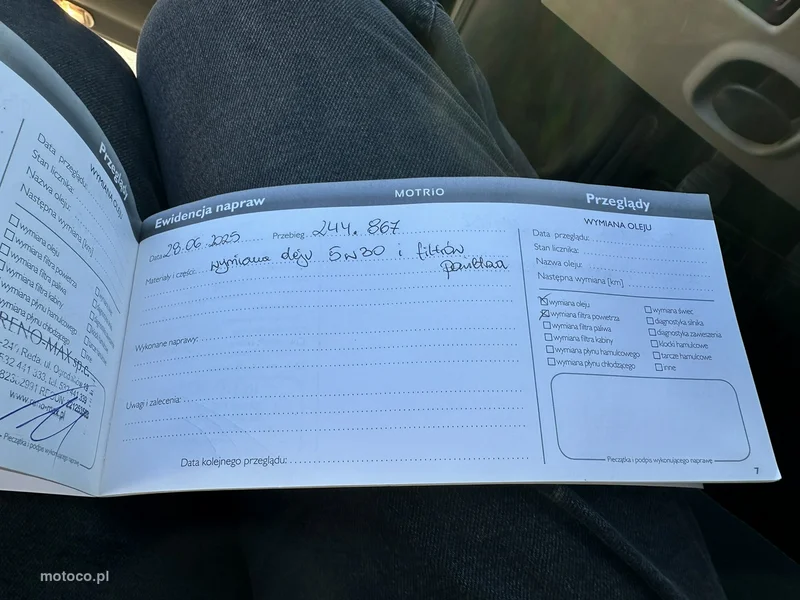 Przeglądy
WYMIANA OLEJU
Data przeglądu:
Stan licznika:
Nazwa oleju:
Następna wymiana [km]
wymiana oleju
wymiana filtra powietrza
wymiana filtra paliwa
wymiana filtra kabiny
wymiana płynu hamulcowego
wymiana płynu chłodzącego
RENO-MAX sp.c.
www.reno-max.pl
Pieczątka i podpis wykonującego naprawę
Ewidencja napraw
MOTRIO
Przeglądy
Data 28.06.2025 Przebieg: 244.867
Materiały i części: wymiana oleju 5w30 i filtrów
Wykonane naprawy:
Uwagi i zalecenia:
Data kolejnego przeglądu:
WYMIANA OLEJU
Data przeglądu:
Stan licznika:
Nazwa oleju:
Następna wymiana [km]
wymiana oleju
wymiana filtra powietrza
wymiana filtra paliwa
wymiana filtra kabiny
wymiana płynu hamulcowego
wymiana płynu chłodzącego
wymiana świec
diagnostyka silnika
diagnostyka zawieszenia
klocki hamulcowe
tarcze hamulcowe
inne
Pieczątka i podpis wykonującego naprawę
7
motoco.pl